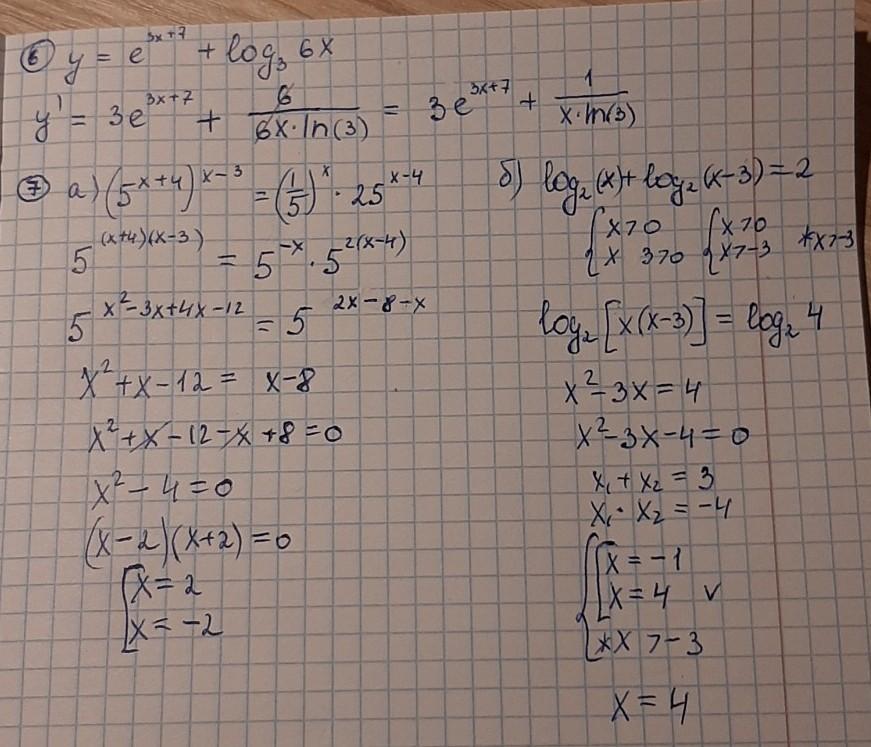 ⑥ y = e^{3x+7} + log₃ 6x
y' = 3e^{3x+7} + 6/(6x·ln(3)) = 3e^{3x+7} + 1/(x·ln(3))
⑦ а) (5^{x+4})^{x-3} = (1/5)^x · 25^{x-4}
5^{(x+4)(x-3)} = 5^{-x} · 5^{2(x-4)}
5^{x²-3x+4x-12} = 5^{2x-8-x}
x²+x-12 = x-8
x²+x-12-x+8=0
x²-4=0
(x-2)(x+2)=0
[x=2
x=-2
б) log₂(x)+log₂(x-3)=2
{x>0 {x>0
x 3>0 x>-3 *x>-3
log₂[x(x-3)] = log₂4
x²-3x=4
x²-3x-4=0
x₁+x₂=3
x₁·x₂=-4
{[x=-1
x=4 v
*x>-3
x=4